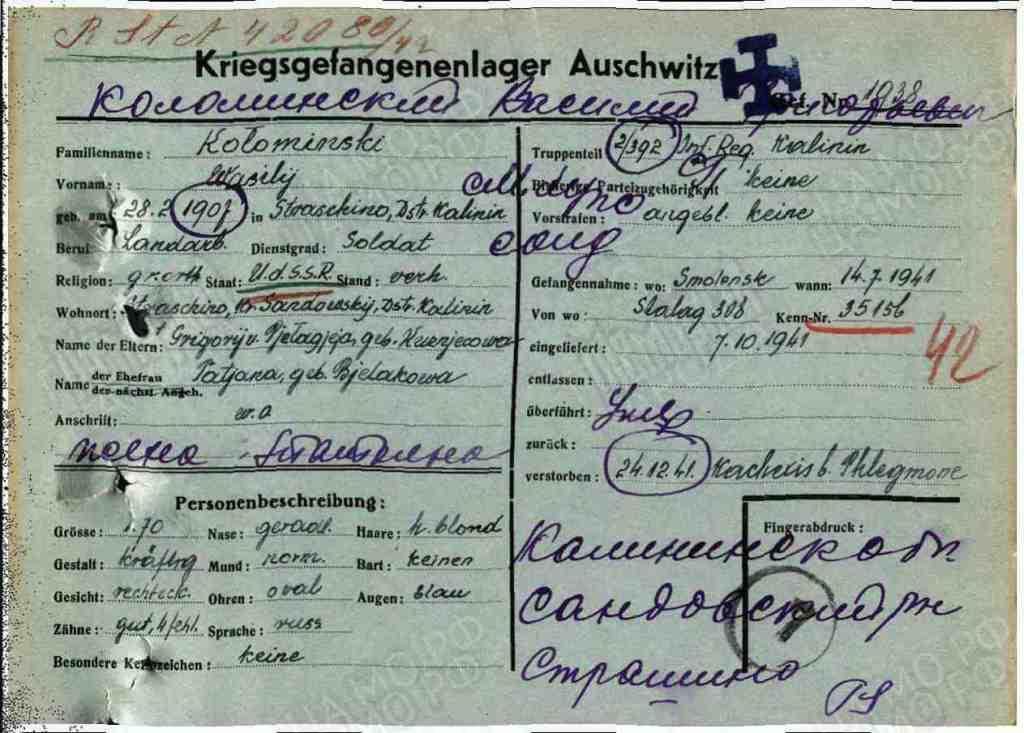 R St A 42080/42
Kriegsgefangenenlager Auschwitz
Gef. Nr. 1938
Коломинский Василий Григорьевич
Familienname: Kolominski
Vorname: Wasilij
geb. am 28.2.1907 in Straschino, Dstr. Kalinin
Beruf: Landarb. Dienstgrad: Soldat
Religion: gr. orth Staat: U.d.S.S.R. Stand: verh.
Wohnort: Straschino, Kr. Sandowskij, Dstr. Kalinin
Name der Eltern: Grigorij u. Pjelagjeja, geb. Kusnjecowa
Name der Ehefrau Tatjana, geb. Bjelakowa
der nächst. Angeh.
Anschrift: w. o
жена Татьяна
Personenbeschreibung:
Grösse: 1.70 Nase: gerade Haare: h. blond
Gestalt: kräftig Mund: norm. Bart: keinen
Gesicht: rechteck. Ohren: oval Augen: blau
Zähne: gut, 4 fehl. Sprache: russ
Besondere Kennzeichen: keine
Truppenteil 2/392 Inf. Reg. Kalinin
Bisherige Parteizugehörigkeit keine
Vorstrafen: angebl. keine
солд
Gefangennahme: wo: Smolensk wann: 14.7.1941
Von wo: Stalag 308 Kenn-Nr. 35156
eingeliefert: 7.10.1941
42
entlassen:
überführt: Умер
zurück:
verstorben: 24.12.41. Kachexis b. Phlegmone
Fingerabdruck:
Калининская обл
Сандовский рн
Страшино